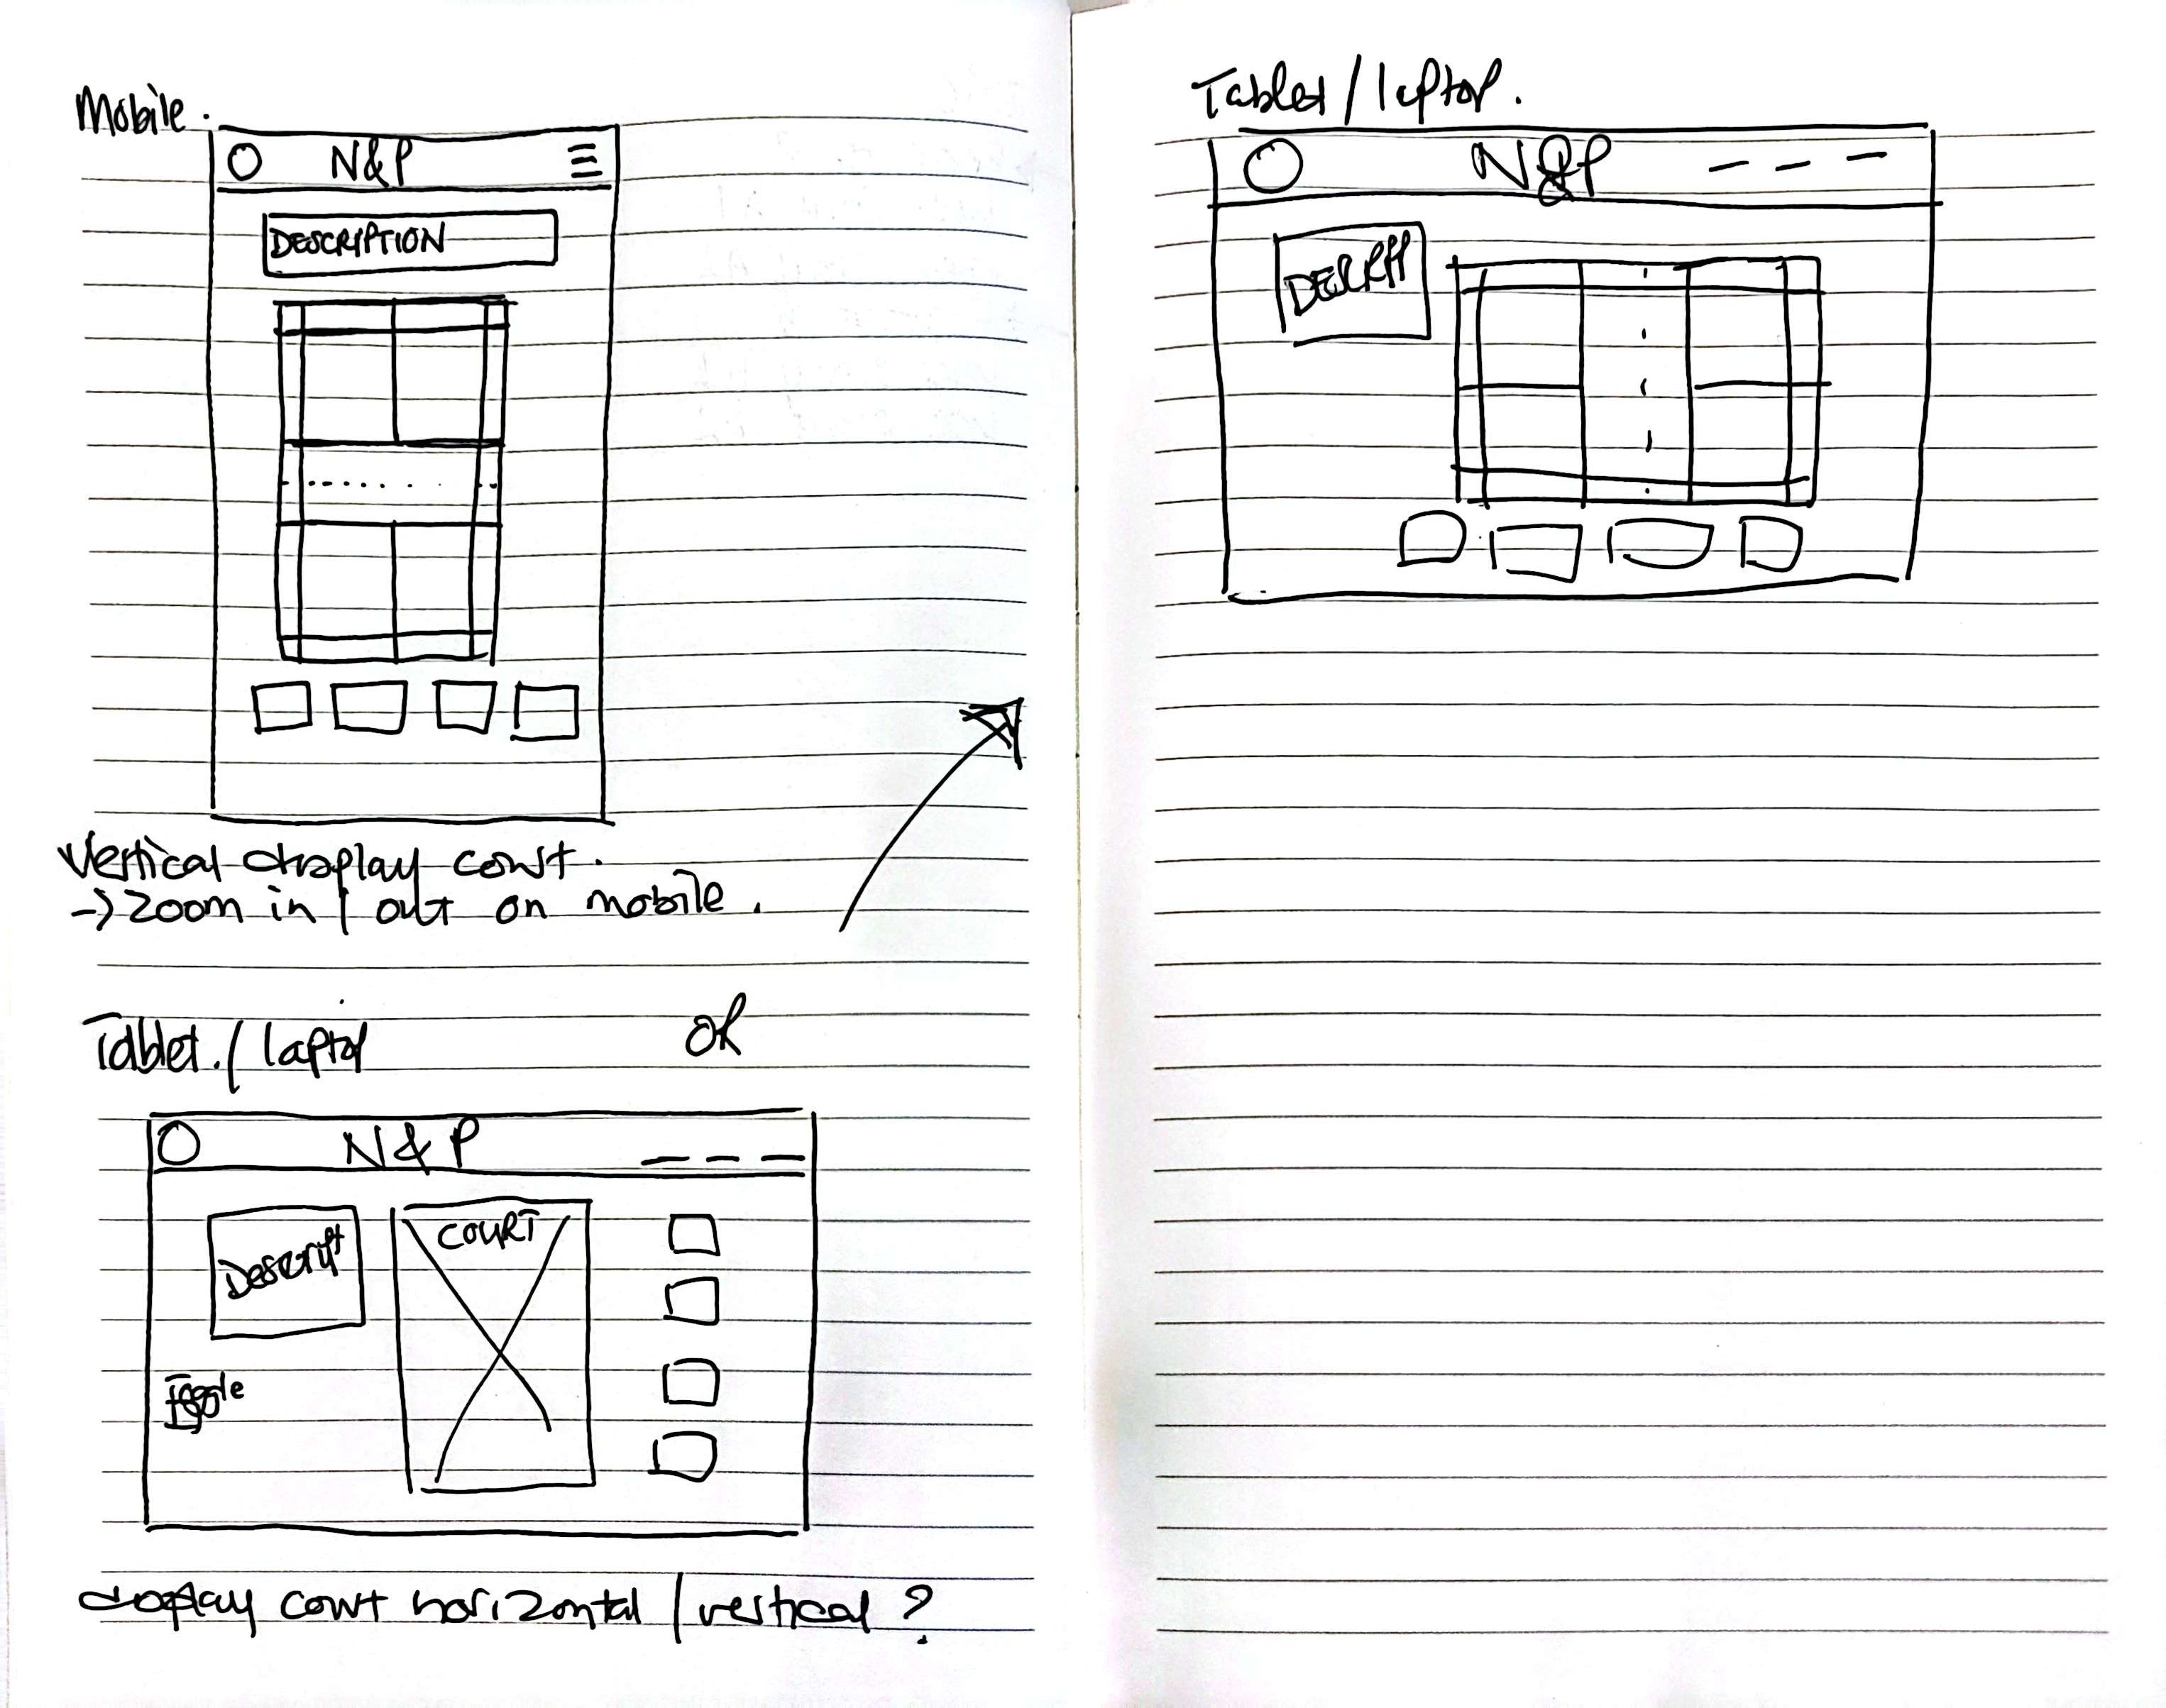 Mobile.
N&P
DESCRIPTION
Vertical display court.
-> zoom in / out on mobile.
Tablet. / laptop
OR
N & P
Descript
COURT
Toggle
display court horizontal / vertical ?
Tablet / laptop.
N&P